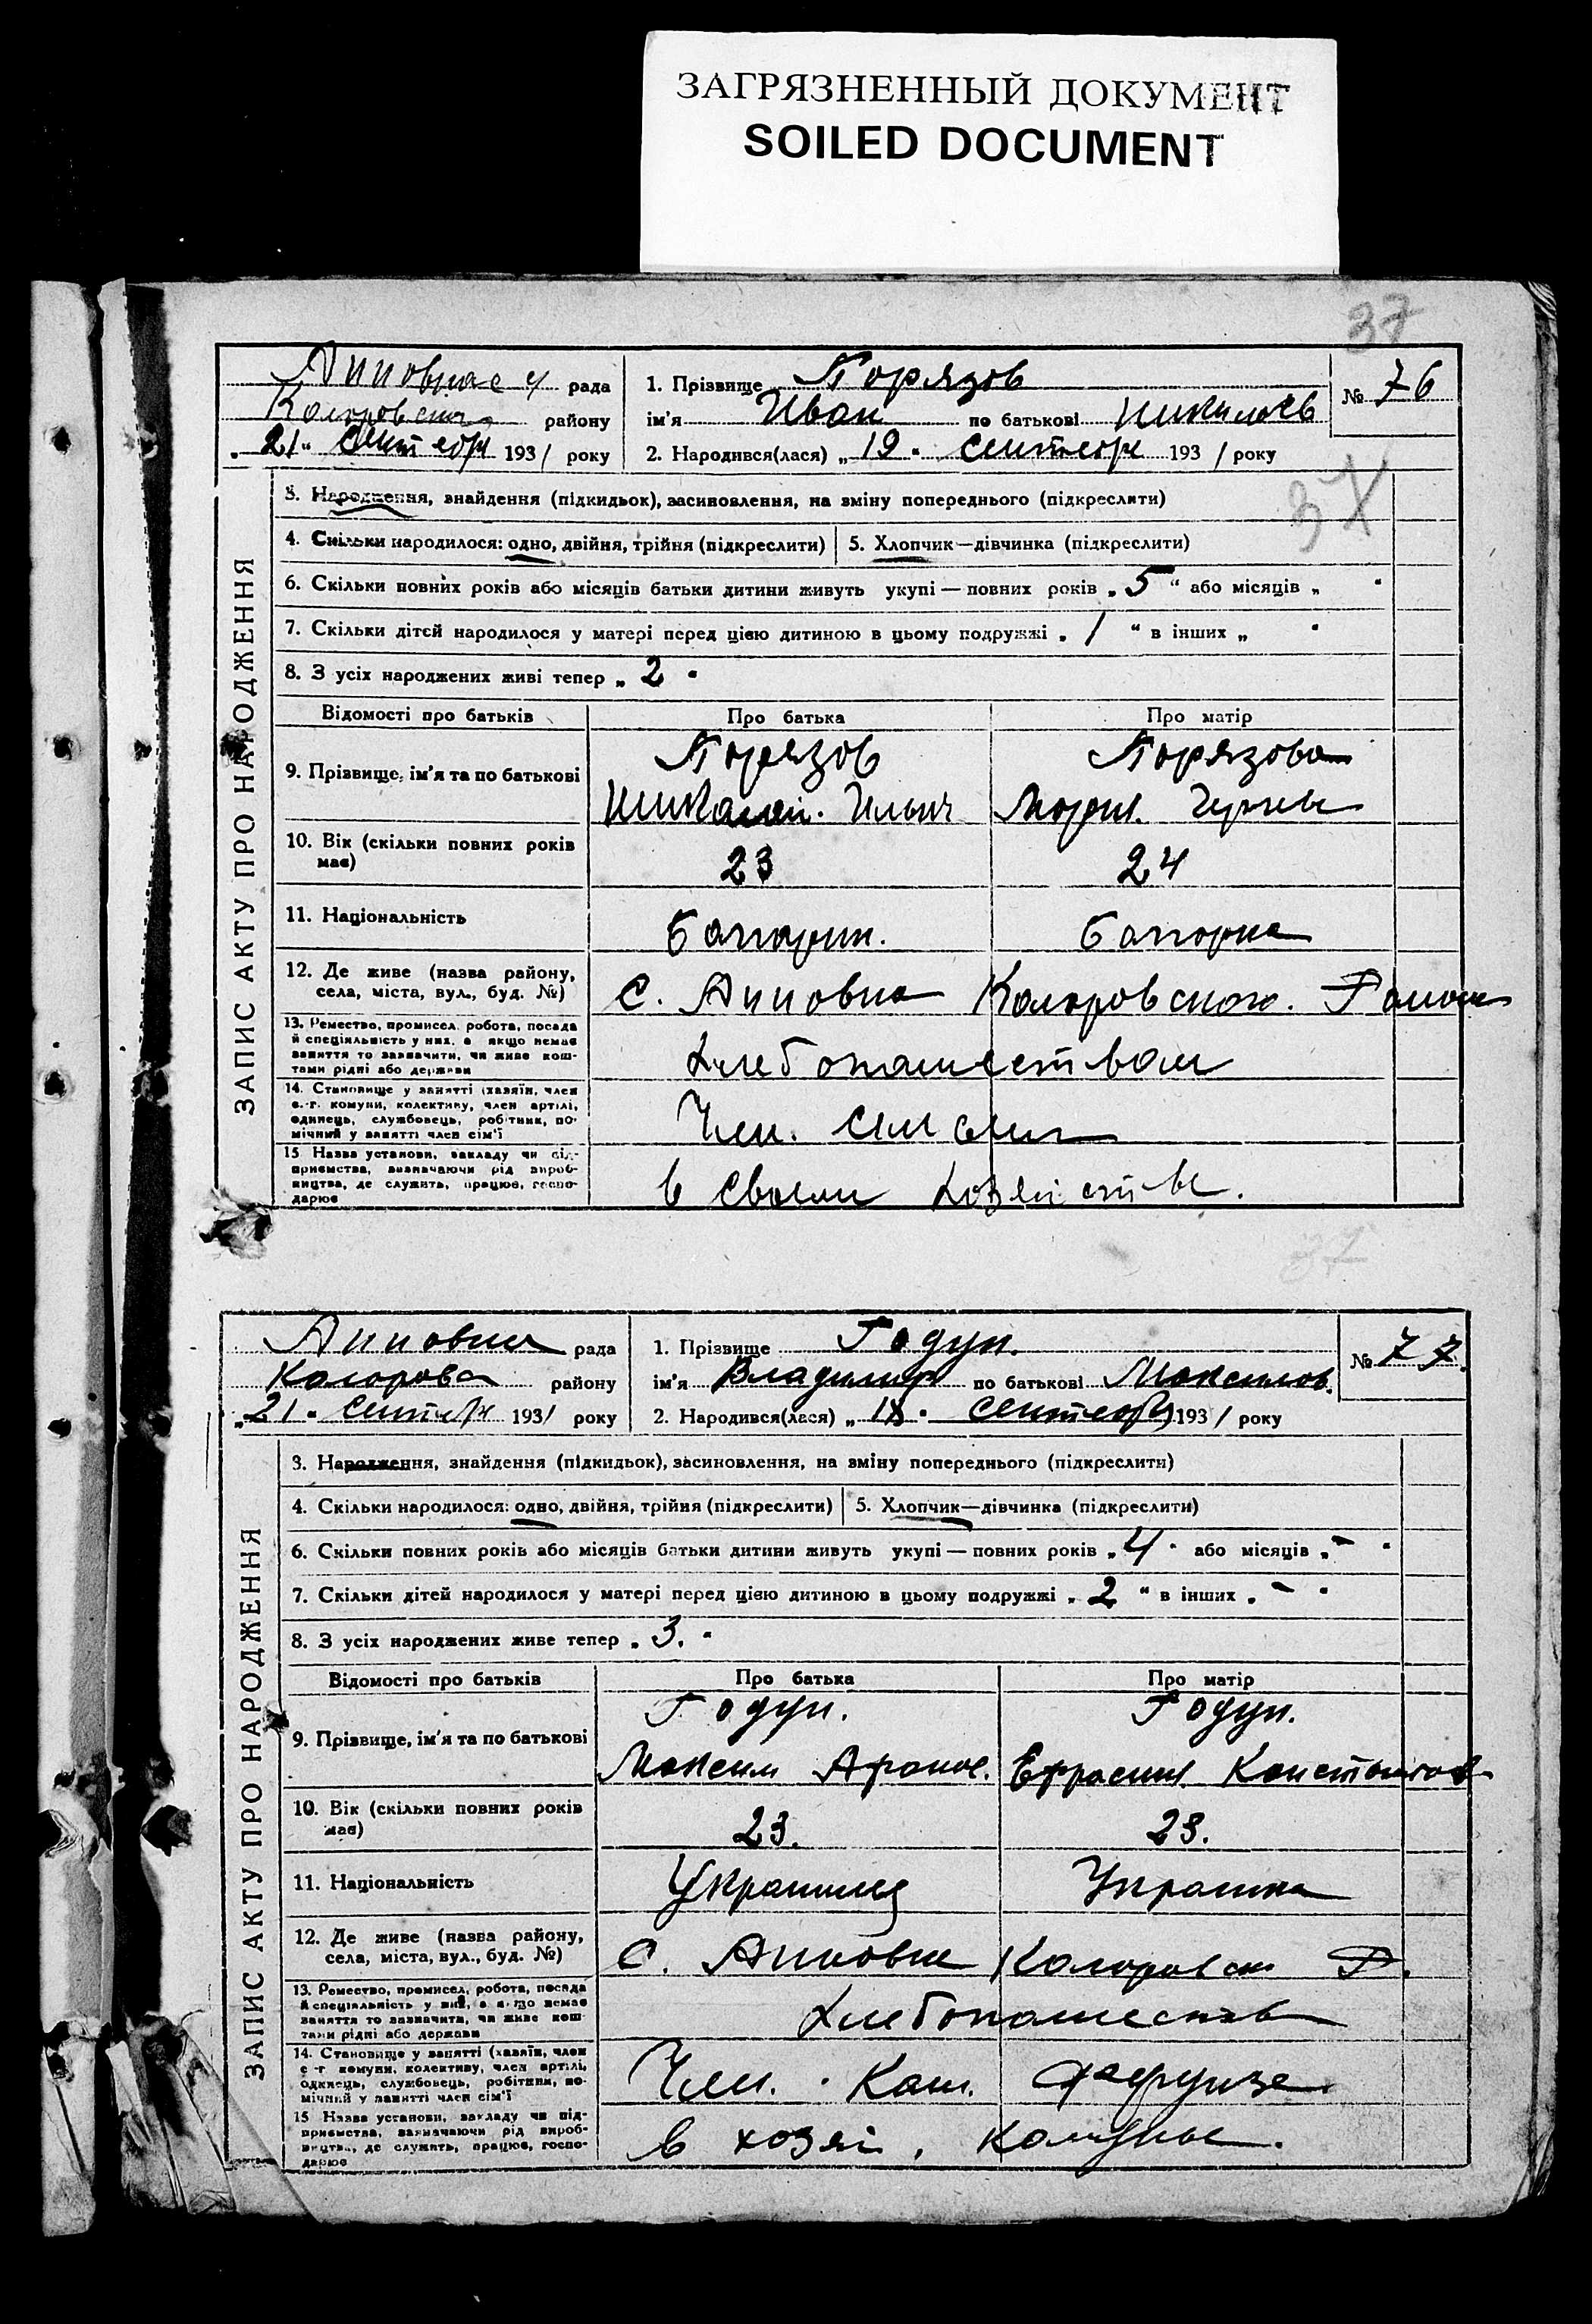 ЗАГРЯЗНЕННЫЙ ДОКУМЕНТ
SOILED DOCUMENT
37
рада
району
21 сентебря 1931 року
1. Прізвище Порязов
ім'я Иван по батькові Николаев
2. Народився(лася) „19" сентебря 1931 року
№ 76
37
ЗАПИС АКТУ ПРО НАРОДЖЕННЯ
3. Народження, знайдення (підкидьок), засиновлення, на зміну попереднього (підкреслити)
4. Скільки народилося: одно, двійня, трійня (підкреслити) 5. Хлопчик—дівчинка (підкреслити)
6. Скільки повних років або місяців батьки дитини живуть укупі — повних років „5" або місяців „ "
7. Скільки дітей народилося у матері перед цією дитиною в цьому подружжі „1" в інших „ "
8. З усіх народжених живі тепер „2"
Відомості про батьків Про батька Про матір
9. Прізвище, ім'я та по батькові
Порязов Порязова
Николай. Ильич Мария.
10. Вік (скільки повних років має) 23 24
11. Національність Болгарин. Болгорка
12. Де живе (назва району, села, міста, вул., буд. №)
С. Анновка Коларовского. Район
13. Ремество, промисел, робота, посада й спеціяльність у них, а якщо немає заняття то зазначити, чи живе коштами рідні або держави
Хлебопашеством
14. Становище у занятті (хазяїн, член с.-г. комуни, колективу, член артілі, одинець, службовець, робітник, помічний у занятті член сім'ї
Член.
15 Назва установи, закладу чи підприємства, визначаючи рід виробництва, де служить, працює, господарює
в своем хозяйстве.
37
Анновка рада
Коларова району
„21" сентебря 1931 року
1. Прізвище Годун.
ім'я Владимир по батькові Максимов.
2. Народився(лася) „18" сентебря 1931 року
№ 77.
ЗАПИС АКТУ ПРО НАРОДЖЕННЯ
3. Народження, знайдення (підкидьок), засиновлення, на зміну попереднього (підкреслити)
4. Скільки народилося: одно, двійня, трійня (підкреслити) 5. Хлопчик—дівчинка (підкреслити)
6. Скільки повних років або місяців батьки дитини живуть укупі — повних років „4" або місяців „-"
7. Скільки дітей народилося у матері перед цією дитиною в цьому подружжі „2" в інших „-"
8. З усіх народжених живе тепер „3."
Відомості про батьків Про батька Про матір
9. Прізвище, ім'я та по батькові
Годун. Годун.
Максим Афанас. Ефросин. Константов
10. Вік (скільки повних років має) 23. 23.
11. Національність Украинец Украинка
12. Де живе (назва району, села, міста, вул., буд. №)
С. Анновка Коларовск Р.
13. Ремество, промисел, робота, посада й спеціяльність у них, а якщо немає заняття то зазначити, чи живе коштами рідні або держави
Хлебопашеств
14. Становище у занятті (хазяїн, член с-г комуни, колективу, член артілі, одинець, службовець, робітник, помічний у занятті член сім'ї
Член. Ком.
15 Назва установи, закладу чи підприємства, зазначаючи рід виробництва, де служить, працює, господарює
в хозяй. комуны.